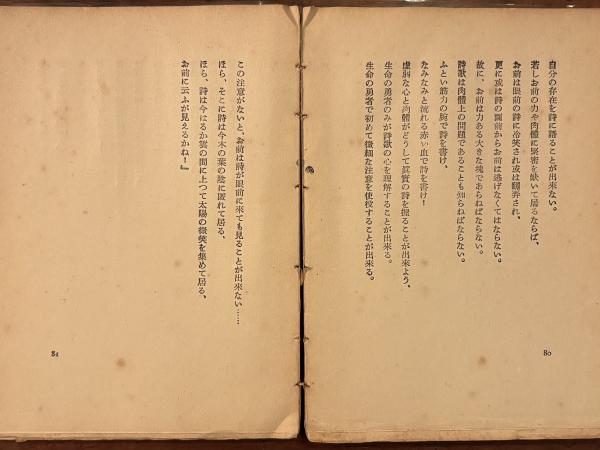 自分の存在を詩に語ることが出來ない。
若しお前の力や肉體に緊密を缺いて居るならば、
お前は眼前の詩に冷笑され或は飜弄され、
更に或は詩の面前からお前は逃げなくてはならない。
故に、お前は力ある大きな塊であらねばならない。
詩歌は肉體上の問題であることも知らねばならない。
ふとい筋力の腕で詩を書け、
なみなみと流れる赤い血で詩を書け！
虛弱な心と肉體がどうして眞實の詩を握ることが出來よう、
生命の勇者のみが詩歌の心を理解することが出來る。
生命の勇者で初めて微細な注意を使役することが出來る。
80
この注意がないと、お前は詩が眼前に來ても見ることが出來ない……
ほら、そこに詩は今木の葉の陰に匿れて居る、
ほら、詩は今はるか雲の間に上つて太陽の微笑を集めて居る、
お前に云ふが見えるかね！』
81